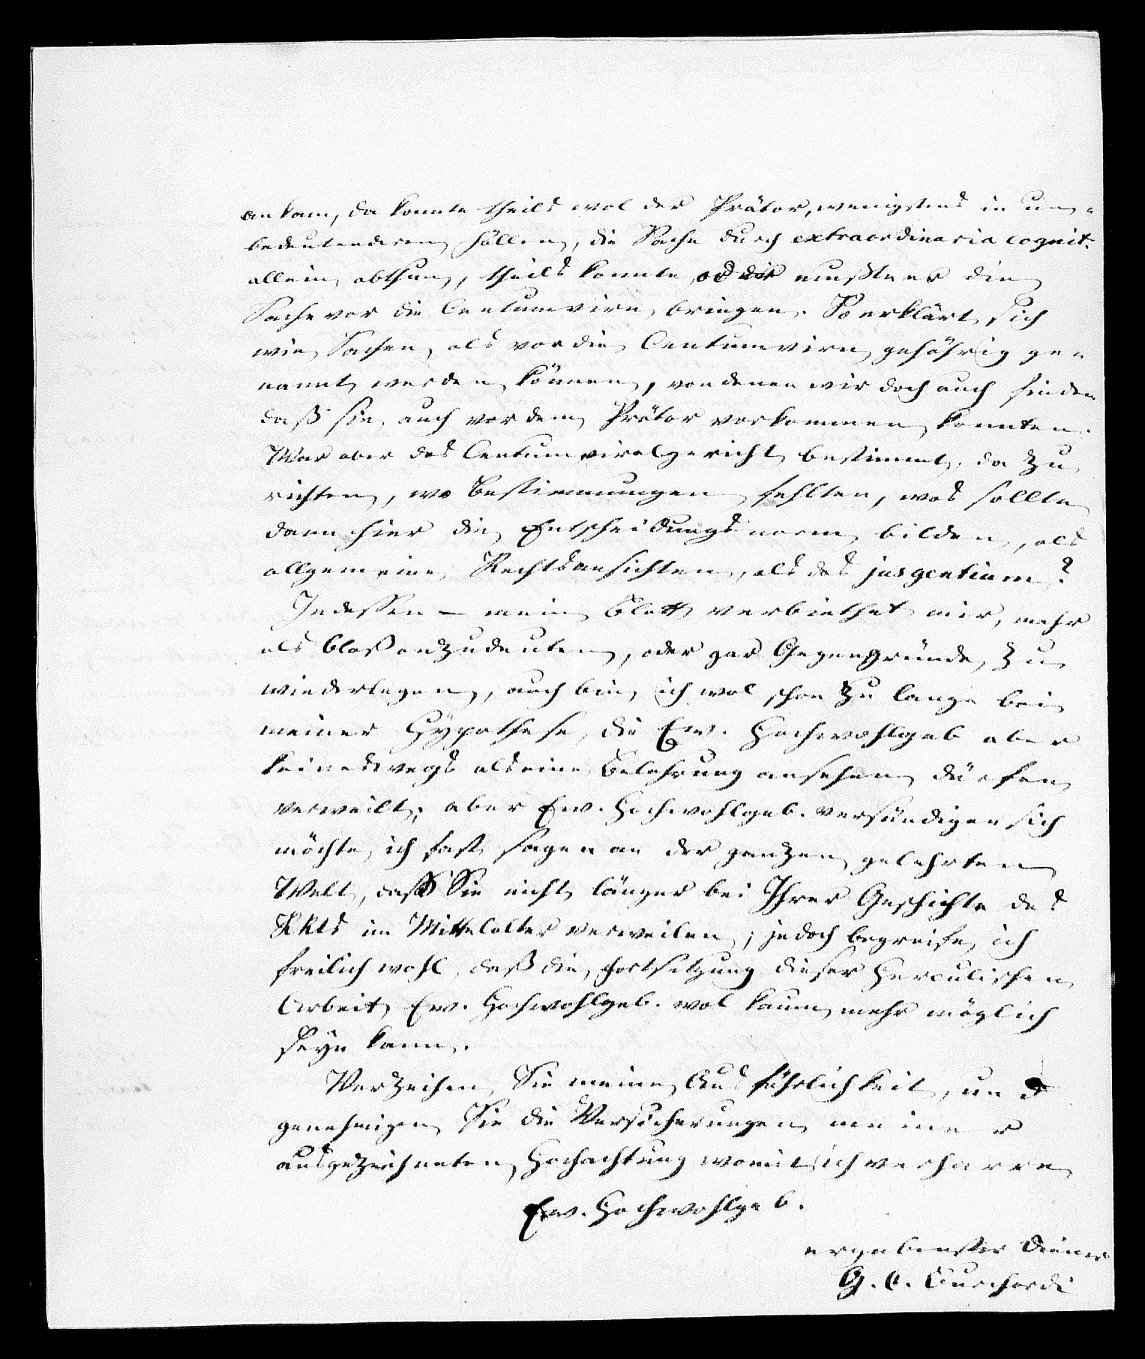 ankam, da konnte theils wol der Prätor, wenigstens in un-
bedeutenderen Fällen, die Sache durch extraordinaria cognit:
allein abthun, theils konnte oder mußte er die
Sache vor die Centumvirn bringen. So erklärt sich
wie Sachen als vor die Centumvirn gehörig ge-
nannt werden können, von denen wir doch auch finden
daß sie auch vor dem Prätor vorkommen konnten.
War aber das Centumviralgericht bestimmt, da zu
richten, wo Bestimmungen fehlten, was sollte
dann hier die Entscheidungsnorm bilden, als
allgemeine Rechtsansichten, als das jus gentium?
Indessen – mein Blatt verbiethet mir, mehr
als blos anzudeuten, oder gar Gegengründe zu
wiederlegen, auch bin ich wol schon zu lange bei
meiner Hypothese, die Ew. Hochwohlgeb aber
keineswegs als eine Belehrung ansehen dürfen
verweilt; aber Ew. Hochwohlgeb. versündigen sich
möchte ich fast sagen an der ganzen gelehrten
Welt, daß Sie nicht länger bei Ihrer Geschichte des
RRts im Mittelalter verweilen; jedoch begreife ich
freilich wohl, daß die Fortsetzung dieser Herculischen
Arbeit Ew. Hochwohlgeb. wol kaum mehr möglich
seyn kann.
Verzeihen Sie meine Ausführlichkeit, und
genehmigen Sie die Versicherungen meiner
ausgezeichneten Hochachtung womit ich verharre
Ew. Hochwohlgeb.
ergebenster Diener
G. C. Burchardi